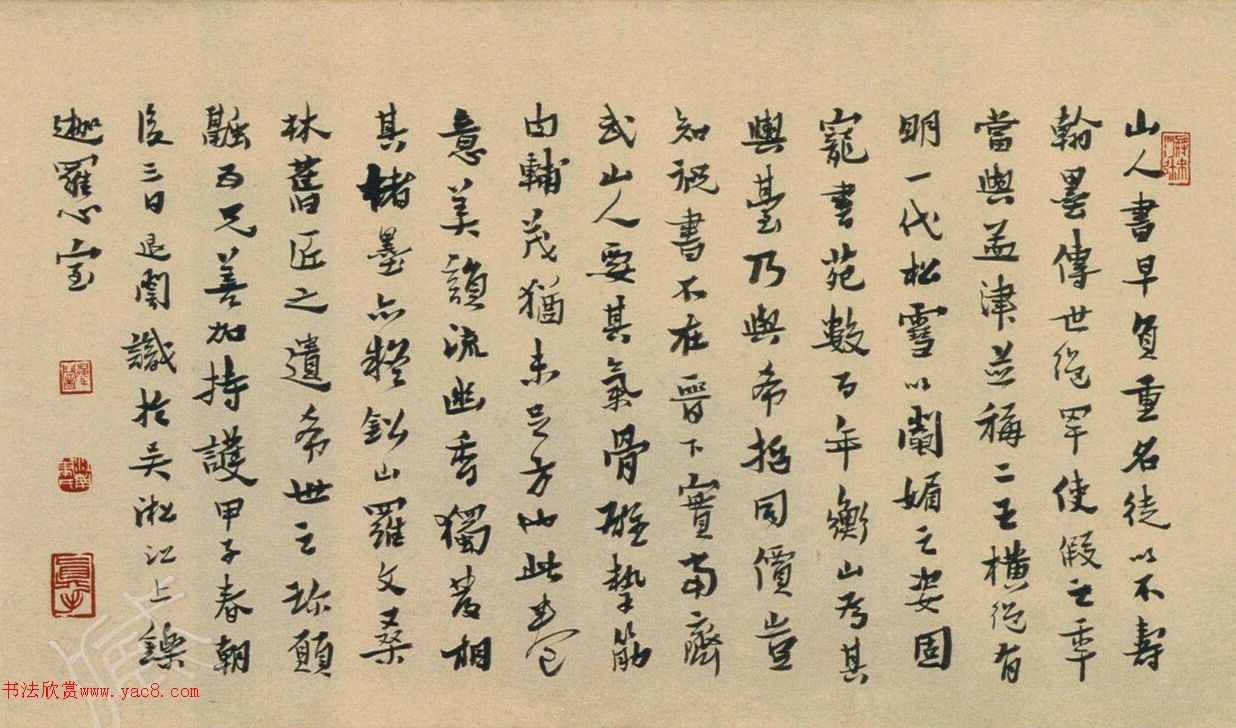 山人書早負重名徒以不壽
翰墨傳世絕罕使假之年
當與孟津並稱二王橫絕有
明一代松雪以闌媚之姿固
寵書苑數百年衡山為其
輿臺乃與希哲同價豈
知祝書不在晉下實當齊
武山人要其氣骨雄摯筋
由輔茂猶未足方也此書
意美韻流幽香獨發相
其楮墨亦羅文桑
林舊匠之遺希世之珍願
融五兄善加持護甲子春朝
後三日退闇識於吳淞江上鑠
迦羅心室
书法欣赏www.yac8.com